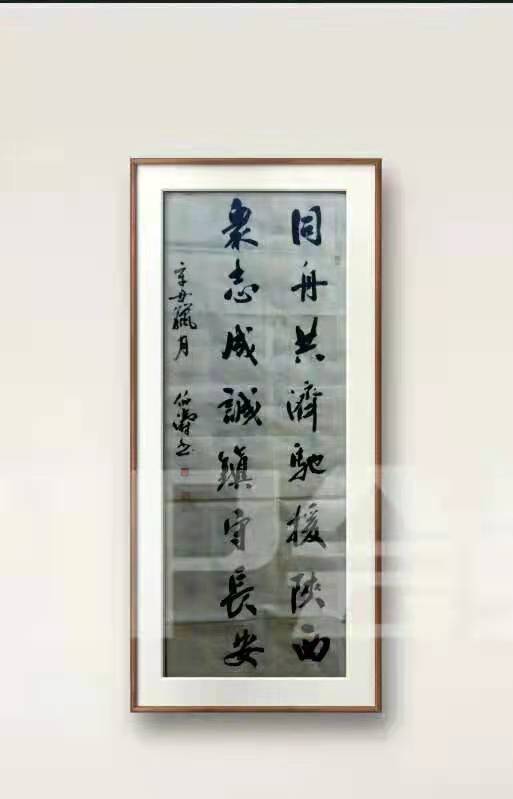 同舟共濟馳援陝西
衆志成誠鎮守長安
辛丑臘月
伯濤書